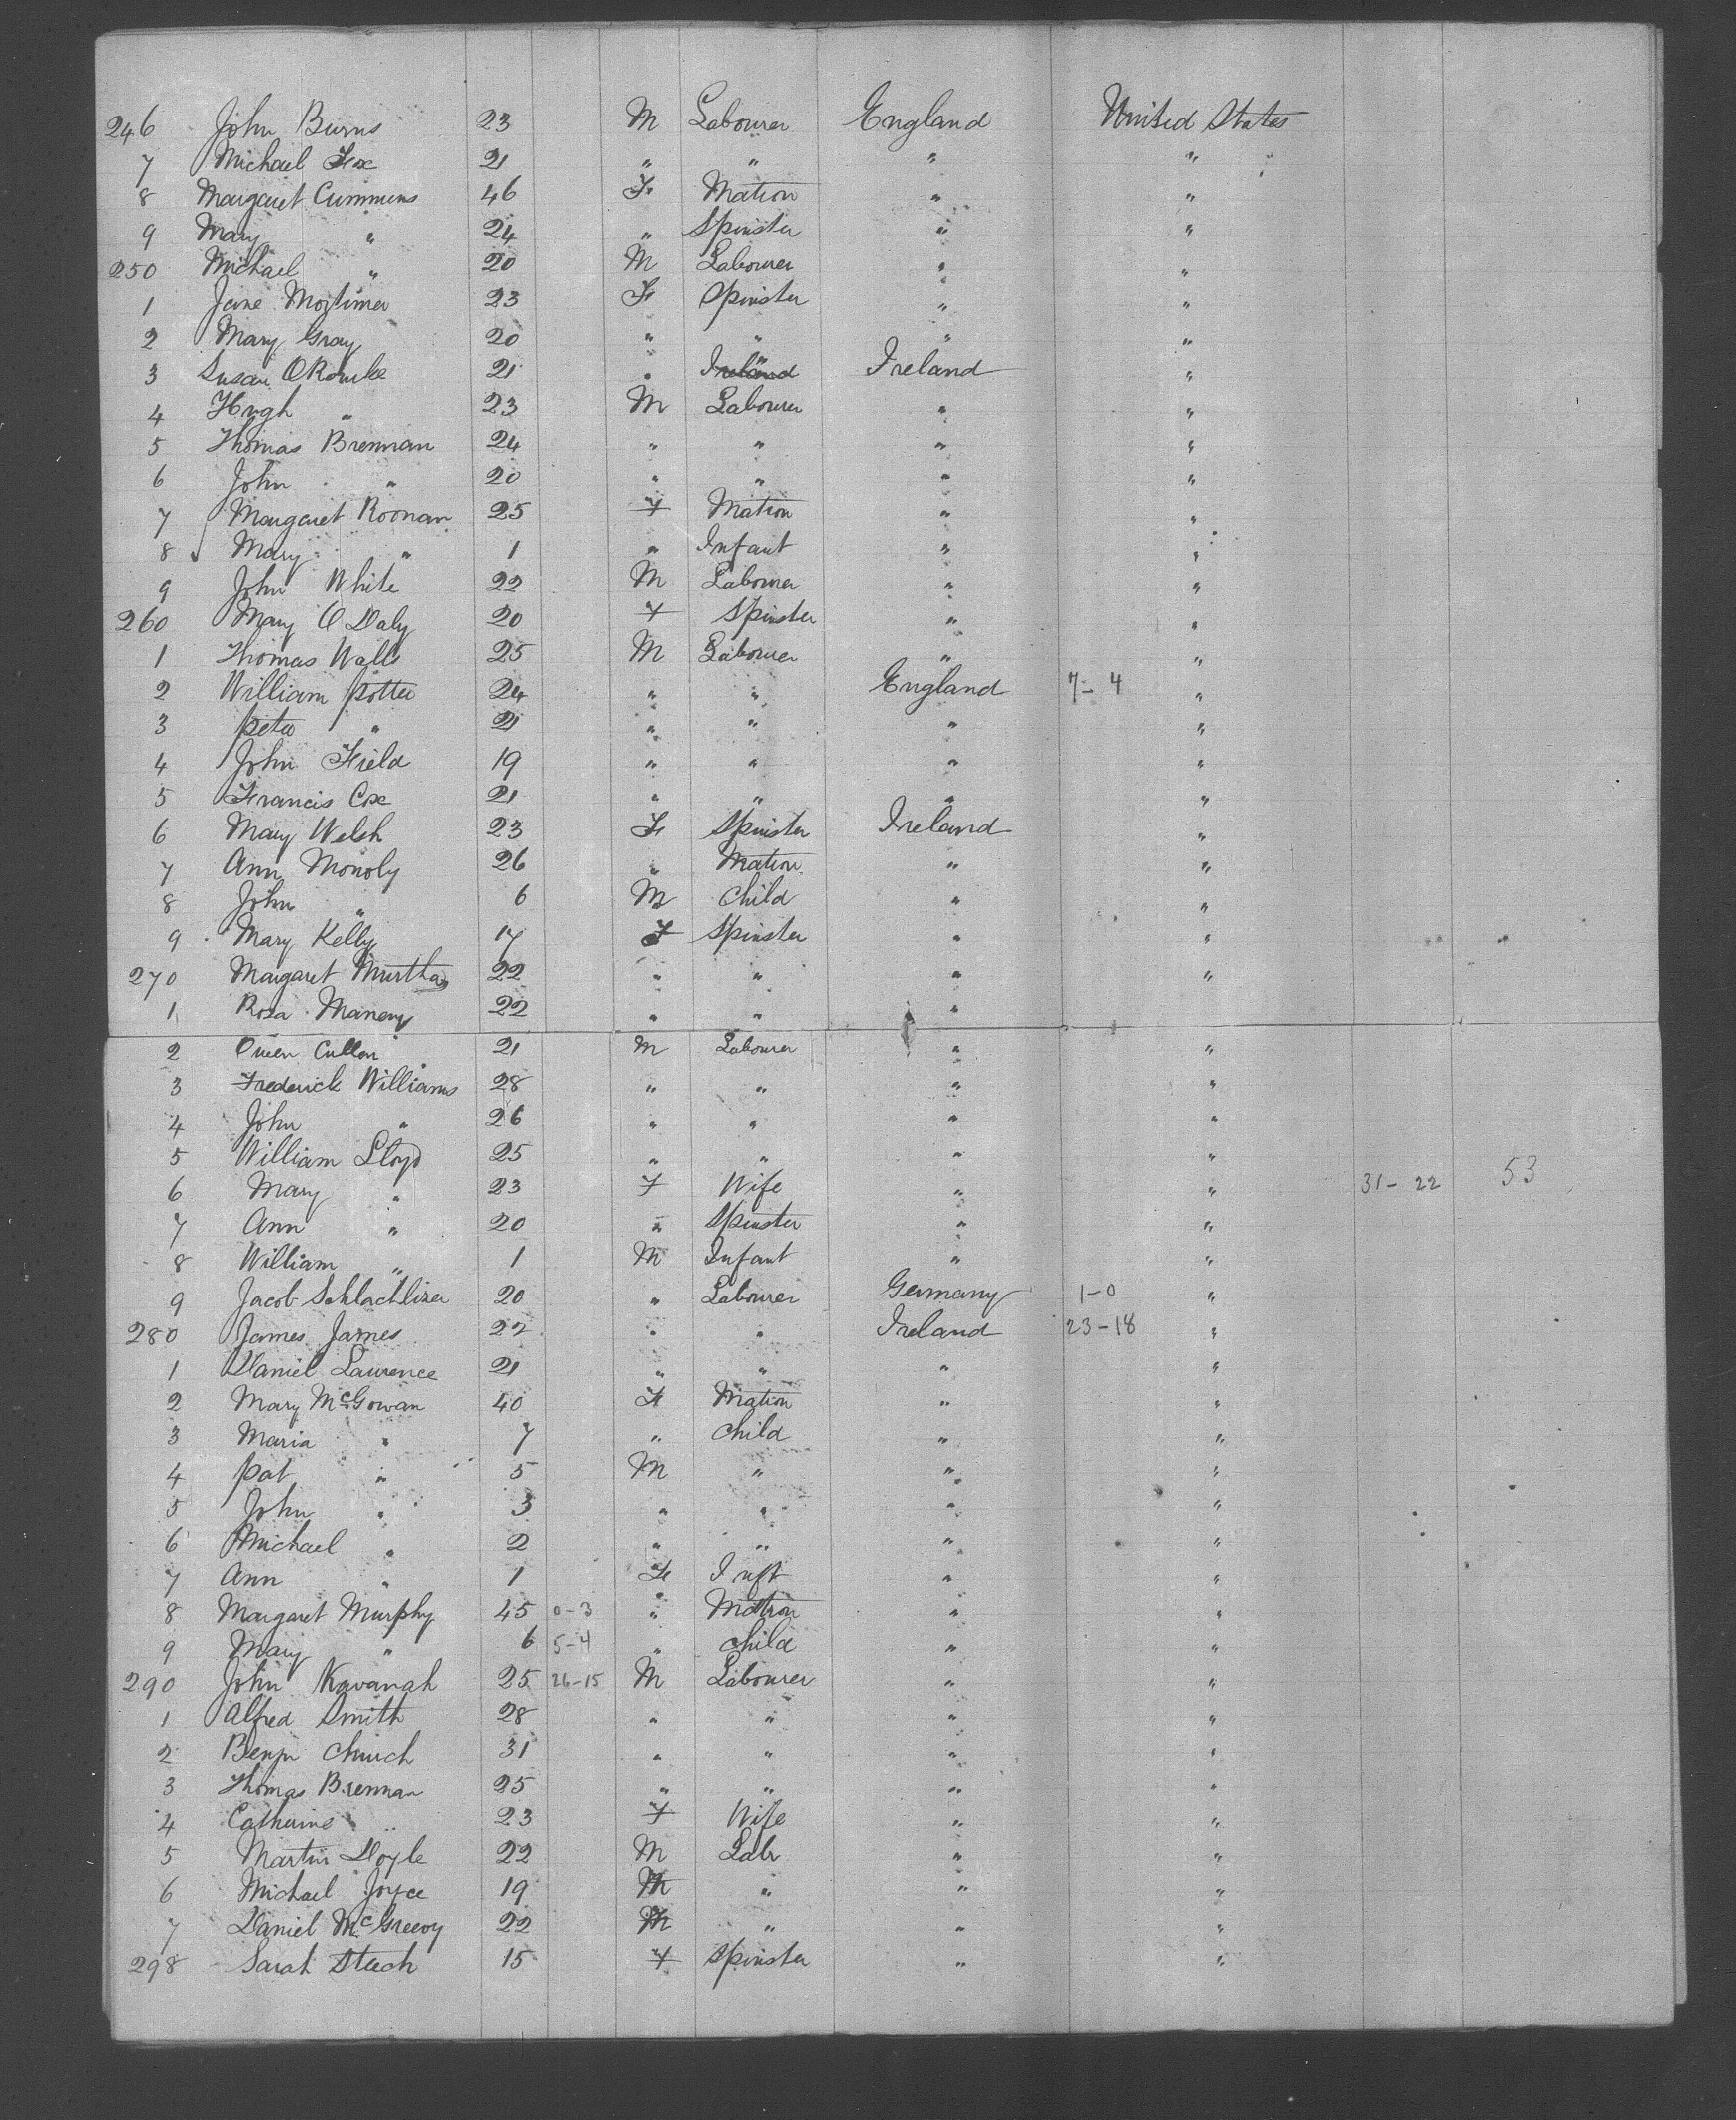 246 John Burns 23 M Labourer England United States
7 Michael Fox 21 " " " "
8 Margaret Cummins 46 F Matron " "
9 Mary " 24 " Spinster " "
250 Michael " 20 M Labourer " "
1 Jane Mortimer 23 F Spinster " "
2 Mary Gray 20 " " " "
3 Susan O'Rourke 21 " Ireland Ireland "
4 Hugh " 23 M Labourer " "
5 Thomas Brennan 24 " " " "
6 John " 20 " " " "
7 Margaret Roonan 25 F Matron " "
8 Mary " 1 " Infant " "
9 John White 22 M Labourer " "
260 Mary O Daly 20 F Spinster " "
1 Thomas Walls 25 M Labourer " "
2 William Potter 24 " " England 7-4 "
3 Peter " 21 " " " "
4 John Field 19 " " " "
5 Francis Cox 21 " " " "
6 Mary Welsh 23 F Spinster Ireland "
7 Ann Monoly 26 " Matron " "
8 John " 6 M Child " "
9 Mary Kelly 17 F Spinster " "
270 Margaret Murtha 22 " " " "
1 Rosa 22 " " "
2 Owen Cullen 21 M Labourer " "
3 Frederick Williams 28 " " " "
4 John " 26 " " " "
5 William Lloyd 25 " " " "
6 Mary " 23 F Wife " " 31-22 53
7 Ann " 20 " Spinster " "
8 William " 1 M Infant " "
9 Jacob 20 " Labourer Germany 1-0 "
280 James James 22 " " Ireland 23-18 "
1 Daniel Lawrence 21 " " " "
2 Mary McGowan 40 F Matron " "
3 Maria " 7 " Child " "
4 Pat " 5 M " " "
5 John " 3 " " " "
6 Michael " 2 " " " "
7 Ann " 1 F Inft " "
8 Margaret Murphy 45 0-3 " Matron " "
9 Mary " 6 5-4 " Child " "
290 John Kavanah 25 26-15 M Labourer " "
1 Alfred Smith 28 " " " "
2 Benjn Church 31 " " " "
3 Thomas Brennan 25 " " " "
4 Catherine " 23 F Wife " "
5 Martin Doyle 22 M Labr " "
6 Michael Joyce 19 M " " "
7 Daniel McGreevy 22 M " " "
298 Sarah 15 F Spinster " "